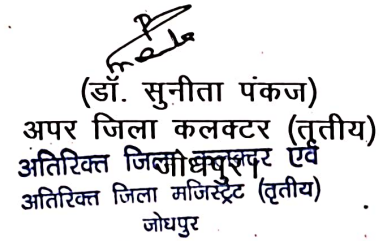 (डॉ. सुनीता पंकज)
अपर जिला कलक्टर (तृतीय)
जोधपुर।
अतिरिक्त जिला कलक्टर एवं
अतिरिक्त जिला मजिस्ट्रेट (तृतीय)
जोधपुर